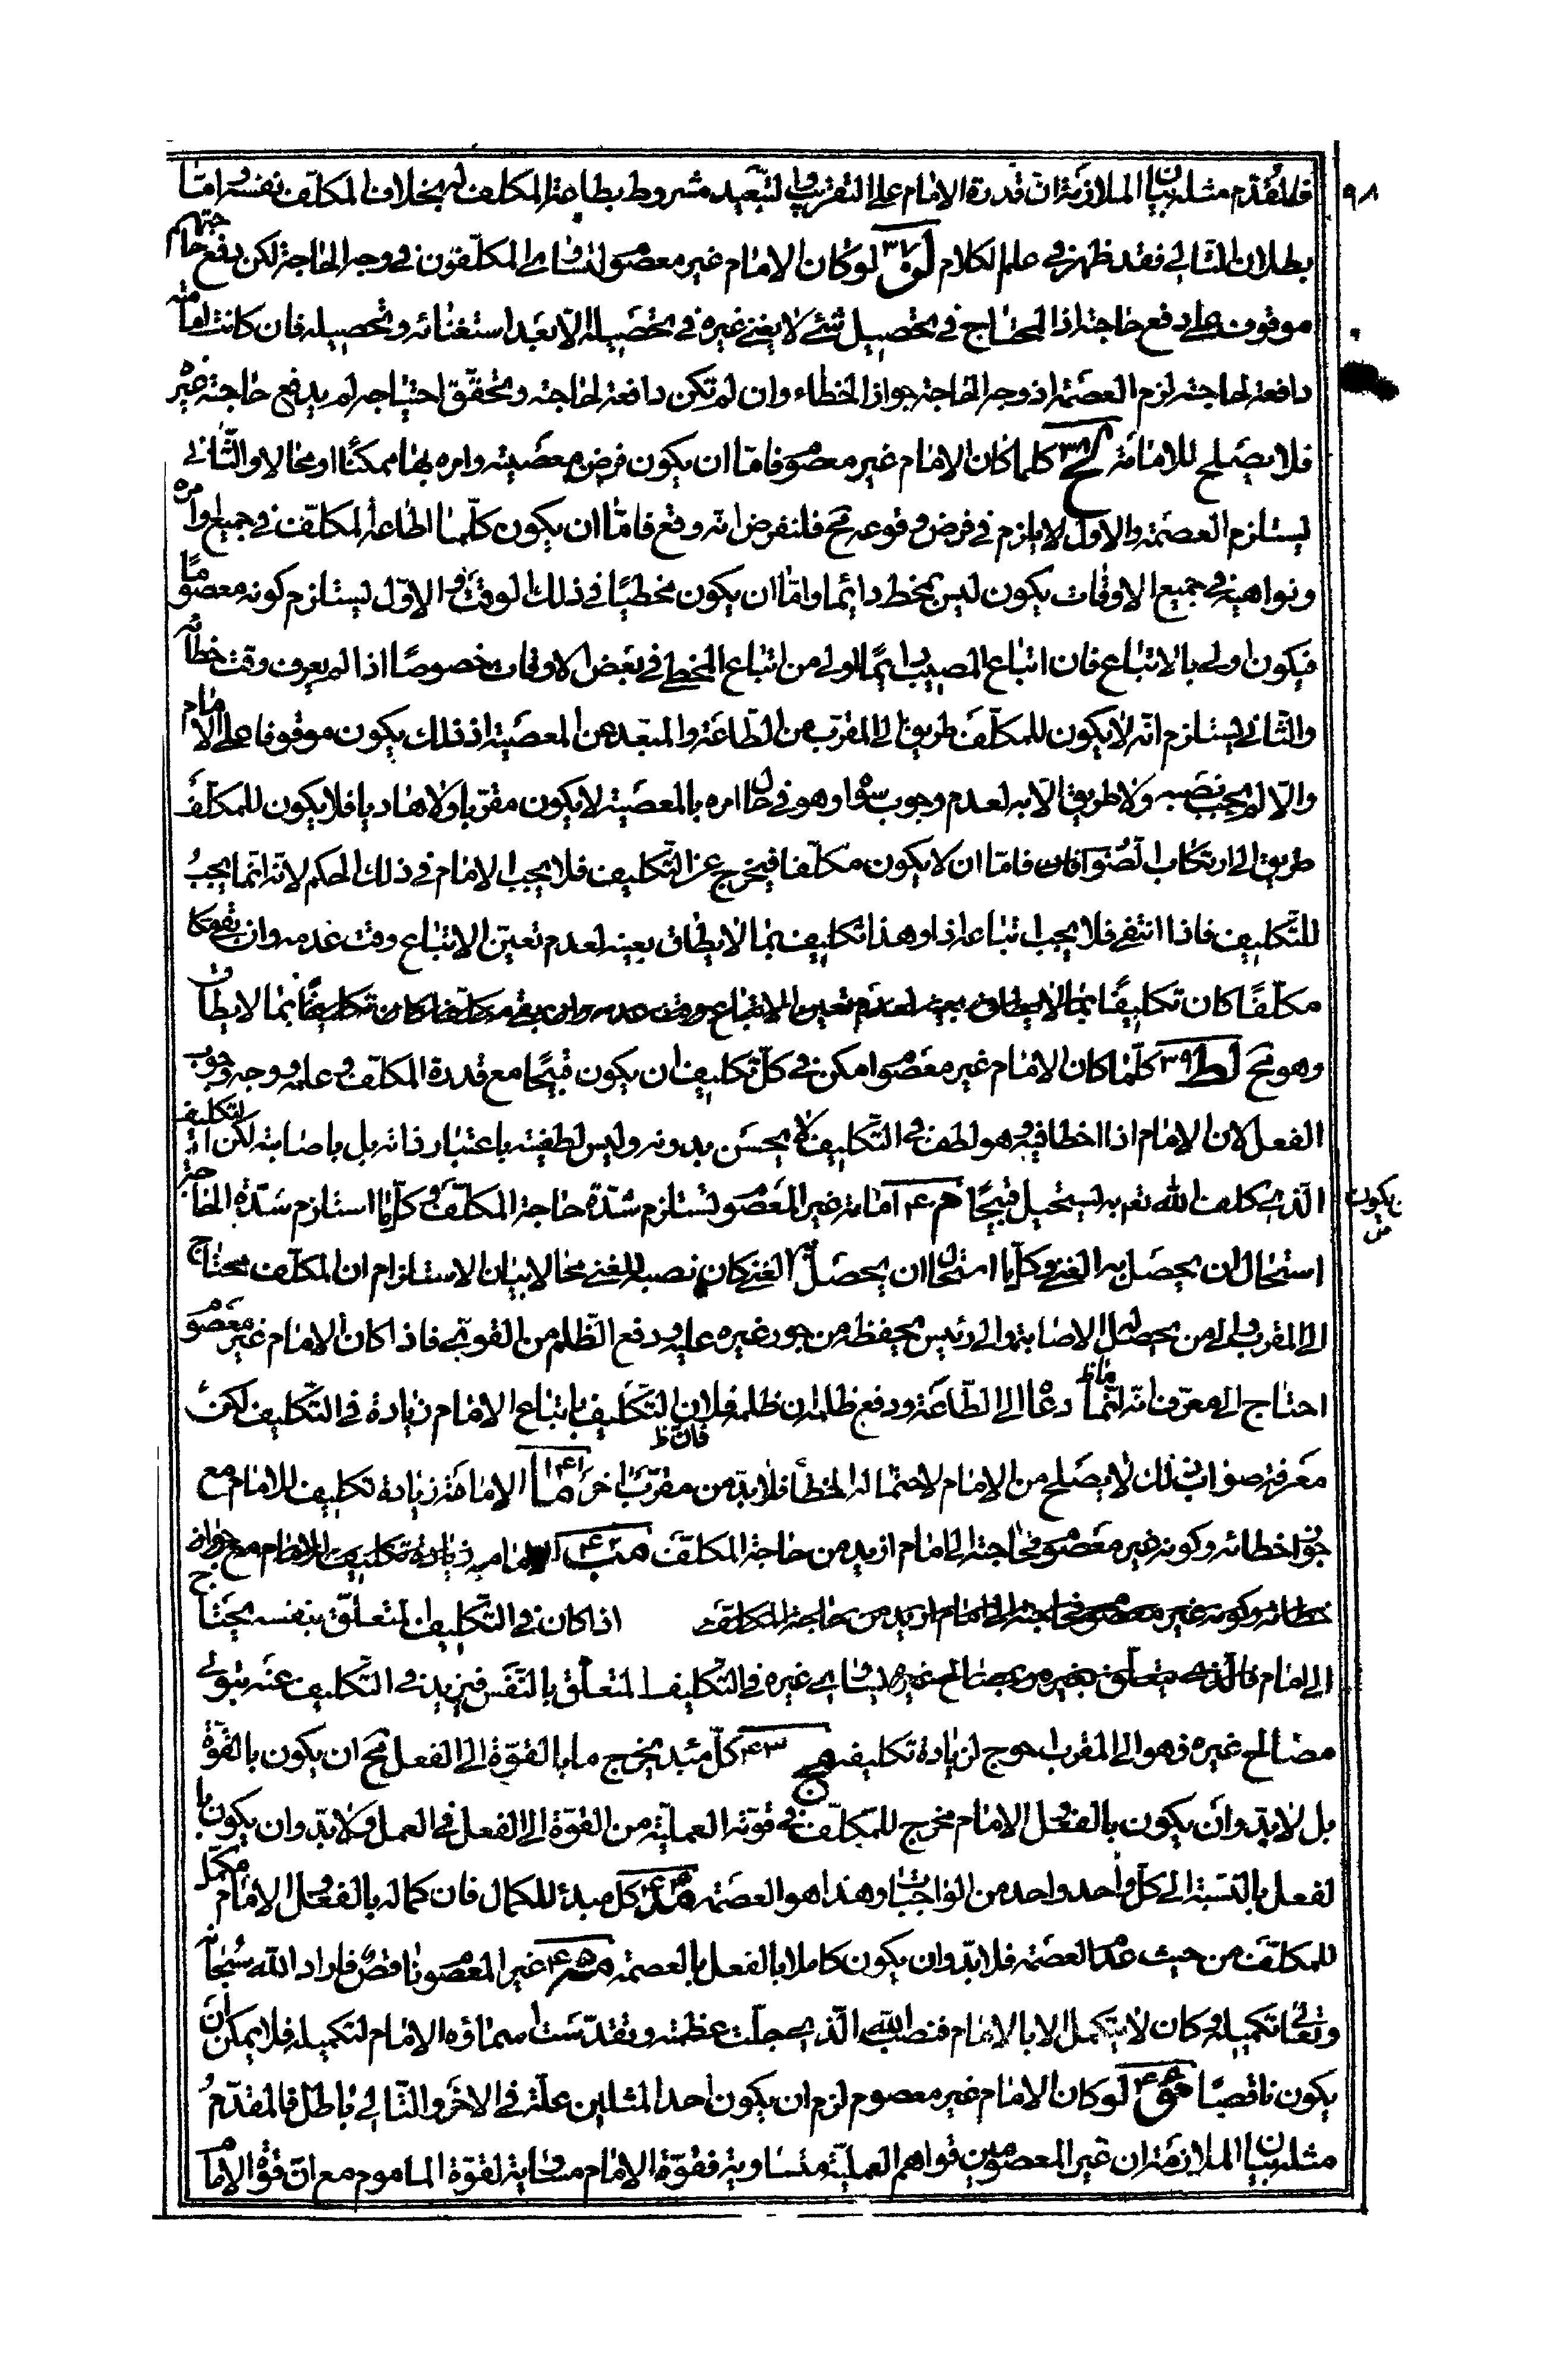 فالمقدّم مثله بيان الملازمة ان قدرة الامام على التقريب والتبعيد مشروط بطاعة المكلف له بخلاف المكلف نفسه وامّا
بطلان التالى فقد ظهر فى علم الكلام لز ٣٧ لو كان الامام غير معصوم لتساوى المكلّفون فى وجه الحاجة لكن دفع حاجتهم
موقوف على دفع حاجته اذ المحتاج فى تحصيل شئ لا يغنى غيره فى تحصيله الّا بعد استغنائه وتحصيله فان كانت امامته
دافعة لحاجته لزم العصمة اذ وجه الحاجة جواز الخطاء وان لم تكن دافعة لحاجته وتحقّق احتياجه لم يدفع حاجة غيره
فلا يصلح للامامة لح ٣٨ كلما كان الامام غير معصوم فامّا ان يكون فرض معصيته وامره بها ممكنًا او محالا والثّانى
يستلزم العصمة والاول لا يلزم فى فرض وقوعه مح فلنفرض انه وقع فامّا ان يكون كلّما اطاعه المكلّف فى جميع اوامره
ونواهيه فى جميع الاوقات يكون ليس بمخط دائما وامّا ان يكون مخطيًا فى ذلك الوقت والاوّل يستلزم كونه معصومًا
فيكون اولى بالاتباع فان اتباع المصيب دايمًا اولى من اتباع المخطى فى بعض الاوقات خصوصًا اذا لم يعرف وقت خطائه
والثّانى يستلزم انّه لا يكون للمكلّف طريق الى المقرّب من الطّاعة والمبعّد من المعصية اذ ذلك يكون موقوفا على الامام
والّا لم يجب نصبه ولا طريق الّا به لعدم وجوب سواه وهو فى حال امره بالمعصية لا يكون مقرّبا ولا هاديا فلا يكون للمكلّف
طريق الى ارتكاب الصّواب فامّا ان لا يكون مكلّفا فيخرج عن التّكليف فلا يجب الامام فى ذلك الحكم لانّه انّما يجب
للتّكليف فاذا انتفى فلا يجب اتباعه اذا وهذا تكليف بما لا يطاق بعينه لعدم تعيّن الاتباع وقت عدمه وان بقى
مكلّفًا كان تكليفًا بما لا يطاق
وهو مح لط ٣٩ كلّما كان الامام غير معصوم امكن فى كلّ تكليف ان يكون قبيحًا مع قدرة المكلّف وعلمه ووجه وجوب
الفعل لان الامام اذا اخطا فيه وهو لطف فى التّكليف لا يحسن بدونه وليس لطفيته باعتبار ذاته بل باصابته لكن التكليف
الّذى كلف الله تعم به يستحيل ان يكون قبيحًا م ٤٠ امامة غير المعصوم تستلزم شدّة حاجة المكلّف وكلّما استلزم شدّة الحاجة
استحال ان يحصل به الغنى وكلّما استحال ان يحصل به الغنى كان نصبه للغنى محالا بيان الاستلزام ان المكلّف محتاج
الى المقرب والى من يحصل له الاصابة والى رئيس يحفظه من جور غيره عليه ودفع الظّلم من القوى فاذا كان الامام غير معصوم
احتاج الى معرّف انّه انّما دعا الى الطّاعة ودفع ظلمه ان ظلمه فلان التكليف باتباع الامام زيادة فى التكليف لكن
معرفة صواب ذلك لا يصلح من الامام لاحتماله الخطأ فلا بدّ من مقرّب اخر ما ٤١ الامامة زيادة تكليف للامام مع
جواز خطائه وكونه غير معصوم فحاجته الى امام ازيد من حاجة المكلّف مب ٤٢
اذا كان فى التّكليف المتعلّق بنفسه يحتاج
الى امام يساوى غيره فى التكليف المتعلّق بالنّفس فيزيد فى التكليف عنه بتولى
مصالح غيره فهو الى المقرب احوج لزيادة تكليفه مج ٤٣ كلّ مبدء يخرج ما بالقوّة الى الفعل مح ان يكون بالقوّة
بل لا بدّ وان يكون بالفعل والامام مخرج للمكلّف فى قوّته العمليّة من القوّة الى الفعل فى العمل ولا بدّ وان يكون با
لفعل بالنسبة الى كلّ واحد واحد من الواجبات وهذا هو العصمة مد ٤٤ كل مبدئ للكمال فان كماله بالفعل والامام مكمّل
للمكلّف من حيث العصمة فلا بدّ وان يكون كاملا بالفعل بالعصمة مه ٤٥ غير المعصوم ناقص فاراد الله سبحانه
وتعالى تكميله وكان لا يتكمل الا بالامام فنصب الله الّذى جلّت عظمته وتقدّست اسماؤه الامام لتكميله فلا يمكن ان
يكون ناقصًا مو ٤٦ لو كان الامام غير معصوم لزم ان يكون احد المثلين علّة فى الاخر والتالى باطل فالمقدّم
مثله بيان الملازمة ان غير المعصومين قواهم العمليّة متساوية فقوّة الامام مساوية لقوّة الماموم مع انّ قوّة الامام
٩٨